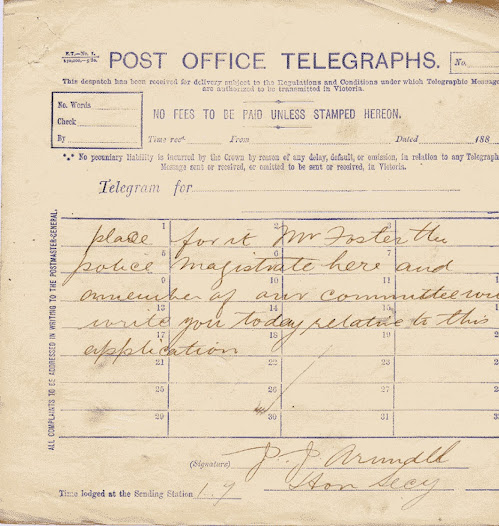 E.T.—No. 1.
POST OFFICE TELEGRAPHS.
No.
This despatch has been received for delivery subject to the Regulations and Conditions under which Telegraphic Message
are authorized to be transmitted in Victoria.
No. Words
Check
By
NO FEES TO BE PAID UNLESS STAMPED HEREON.
Time recd. From Dated 188
*.* No pecuniary liability is incurred by the Crown by reason of any delay, default, or omission, in relation to any Telegraph
Message sent or received, or omitted to be sent or received, in Victoria.
Telegram for
ALL COMPLAINTS TO BE ADDRESSED IN WRITING TO THE POSTMASTER-GENERAL.
1 2 3
place for it Mr Foster the
5 6 7
police magistrate here and
9 10 11
a member of our committee wi
13 14 15
write you today relative to this
17 18 19
application
21 22 23
25 26 27
29 30 31
(Signature) J. J. Arundell
Hon Secy
Time lodged at the Sending Station 1.7